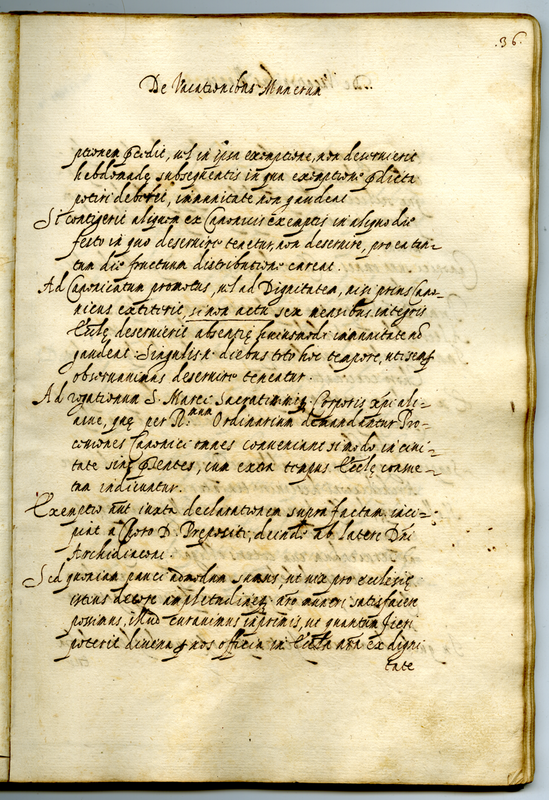 .36.
De Vacationibus Munerum
ptionem p̄cedit, vel in ipsa exemptione, non deservierit
hebdomadę subsequentis in qua exemptione p̄dicta
potiri deberet, immunitate non gaudeat
Si contigerit aliquem ex Canonicis exemptis in aliquo die
festo in quo deservire tenetur, non deservire, pro ea tan-
tum die fructuum distributione careat.
Ad Canonicatum promotus, vel ad Dignitatem, nisi prius Cano-
nicus extiterit, si non actu sex mensibus integris
Ecclę deservierit absentię huiusmodi immunitate nō
gaudeat. Singulis n. diebus toto hoc tempore, ut semp
observavimus deservire teneatur.
Ad rogationum S. Marci Sacratissimiq; Corporis xp̄i ali-
asue, quę per Rmum Ordinarium demandentur Pro-
cessiones Canonici omnes conveniant si modo in civi-
tate sint p̄sentes, cum extra tempus Ecclę
tam indicuntur.
Exemptio aūt iuxta declarationem supra factam inci-
piat a Choro D. Prępositi, deinde ab latere Dni
Archidiaconi
Sed quoniam pauci admodum sumus ut vix pro ecclesię
istius decore amplitudineq; nr̄o muneri satisfacere
possimus, illud curavimus inprimis, ut quantum fieri
poterit divina p nos officia in Eccla nr̄a ex digni
tate